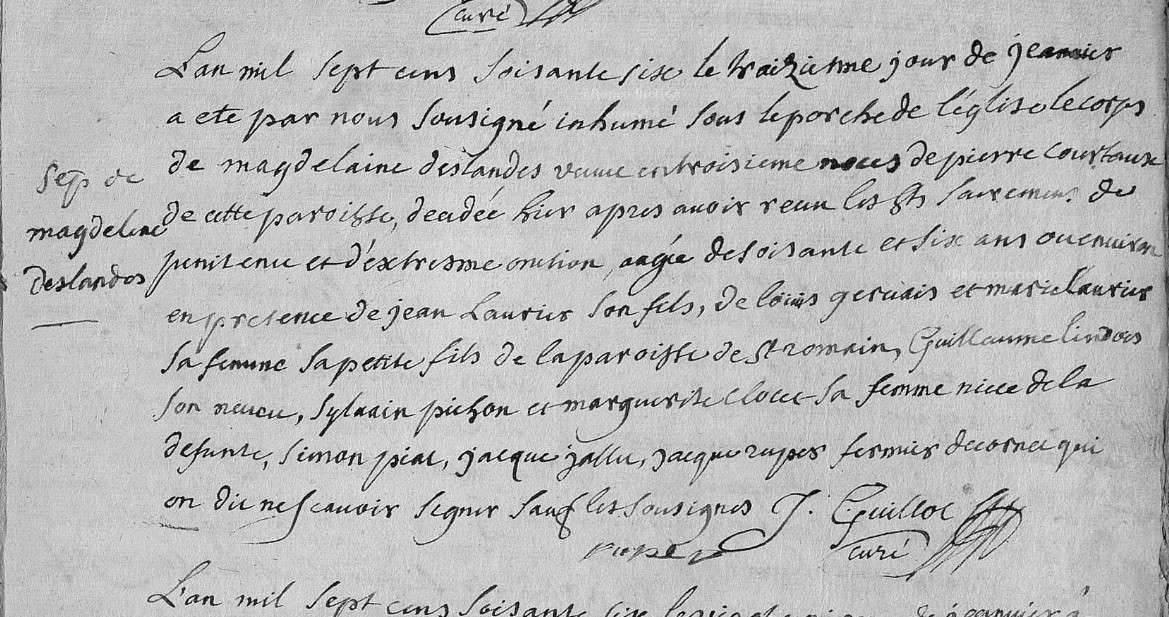 curé
L'an mil sept cens soisante six le traizieme jour de jeanvier
a ete par nous sousigné inhumé sous le porche de l'église le corps
Sep de
magdelene
deslandes
de magdelaine deslandes veuve en troisieme noces de pierre courtaux
de cette paroisse, decedée hier apres avoir recu les sts sacremens de
penitence et d'extresme onction, aagée de soisante et six ans ou environ
en presence de jean Laurier son fils, de loüis gervais et marie laurier
sa femme sa petite fils de la paroisse de st romain, Guillaume
son neveu, Sylvain pichon et marguerite sa femme niece de la
defunte, Simon piat, jacque jallu, jacque rupes fermier de cornee qui
on dit ne scavoir segner sauf les sousignes J. Guilloc
rupes curé
L'an mil sept cens soisante six le de jeanvier a